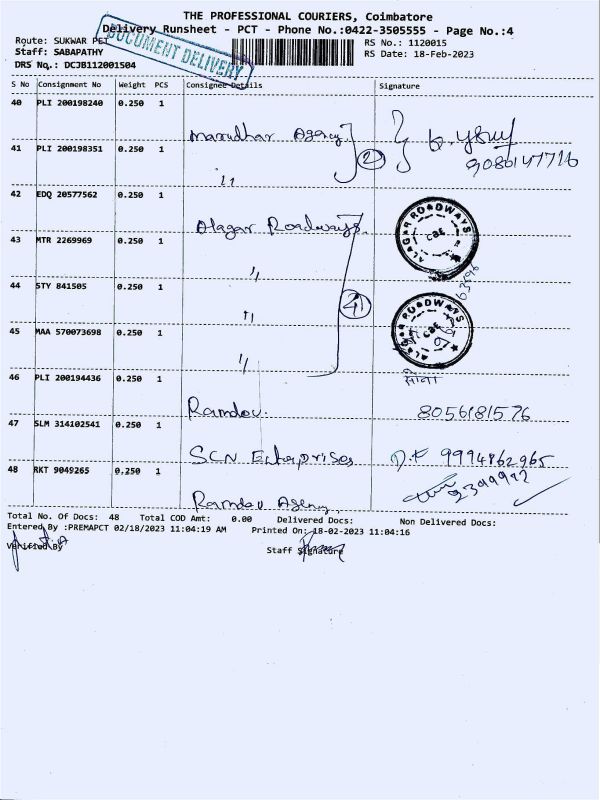 THE PROFESSIONAL COURIERS, Coimbatore
Delivery Runsheet - PCT - Phone No.:0422-3505555 - Page No.:4
Route: SUKWAR PET
RS No.: 1120015
Staff: SABAPATHY
RS Date: 18-Feb-2023
DRS No.: DCJB112001504
DOCUMENT DELIVERY
S No Consignment No Weight PCS Consignee Details Signature
40 PLI 200198240 0.250 1
Marudhar Agency
41 PLI 200198351 0.250 1
2
42 EDQ 20577562 0.250 1
Alagar Roadways
ALAGAR ROADWAYS CBE
43 MTR 2269969 0.250 1
44 STY 841505 0.250 1
4
ALAGAR ROADWAYS CBE
45 MAA 570073698 0.250 1
46 PLI 200194436 0.250 1
Ramdev. 8056181576
47 SLM 314102541 0.250 1
SCN Enterprises 9994862965
48 RKT 9049265 0.250 1
Ramdev Agency
Total No. Of Docs: 48 Total COD Amt: 0.00 Delivered Docs: Non Delivered Docs:
Entered By :PREMAPCT 02/18/2023 11:04:19 AM Printed On: 18-02-2023 11:04:16
Verified By Staff Signature